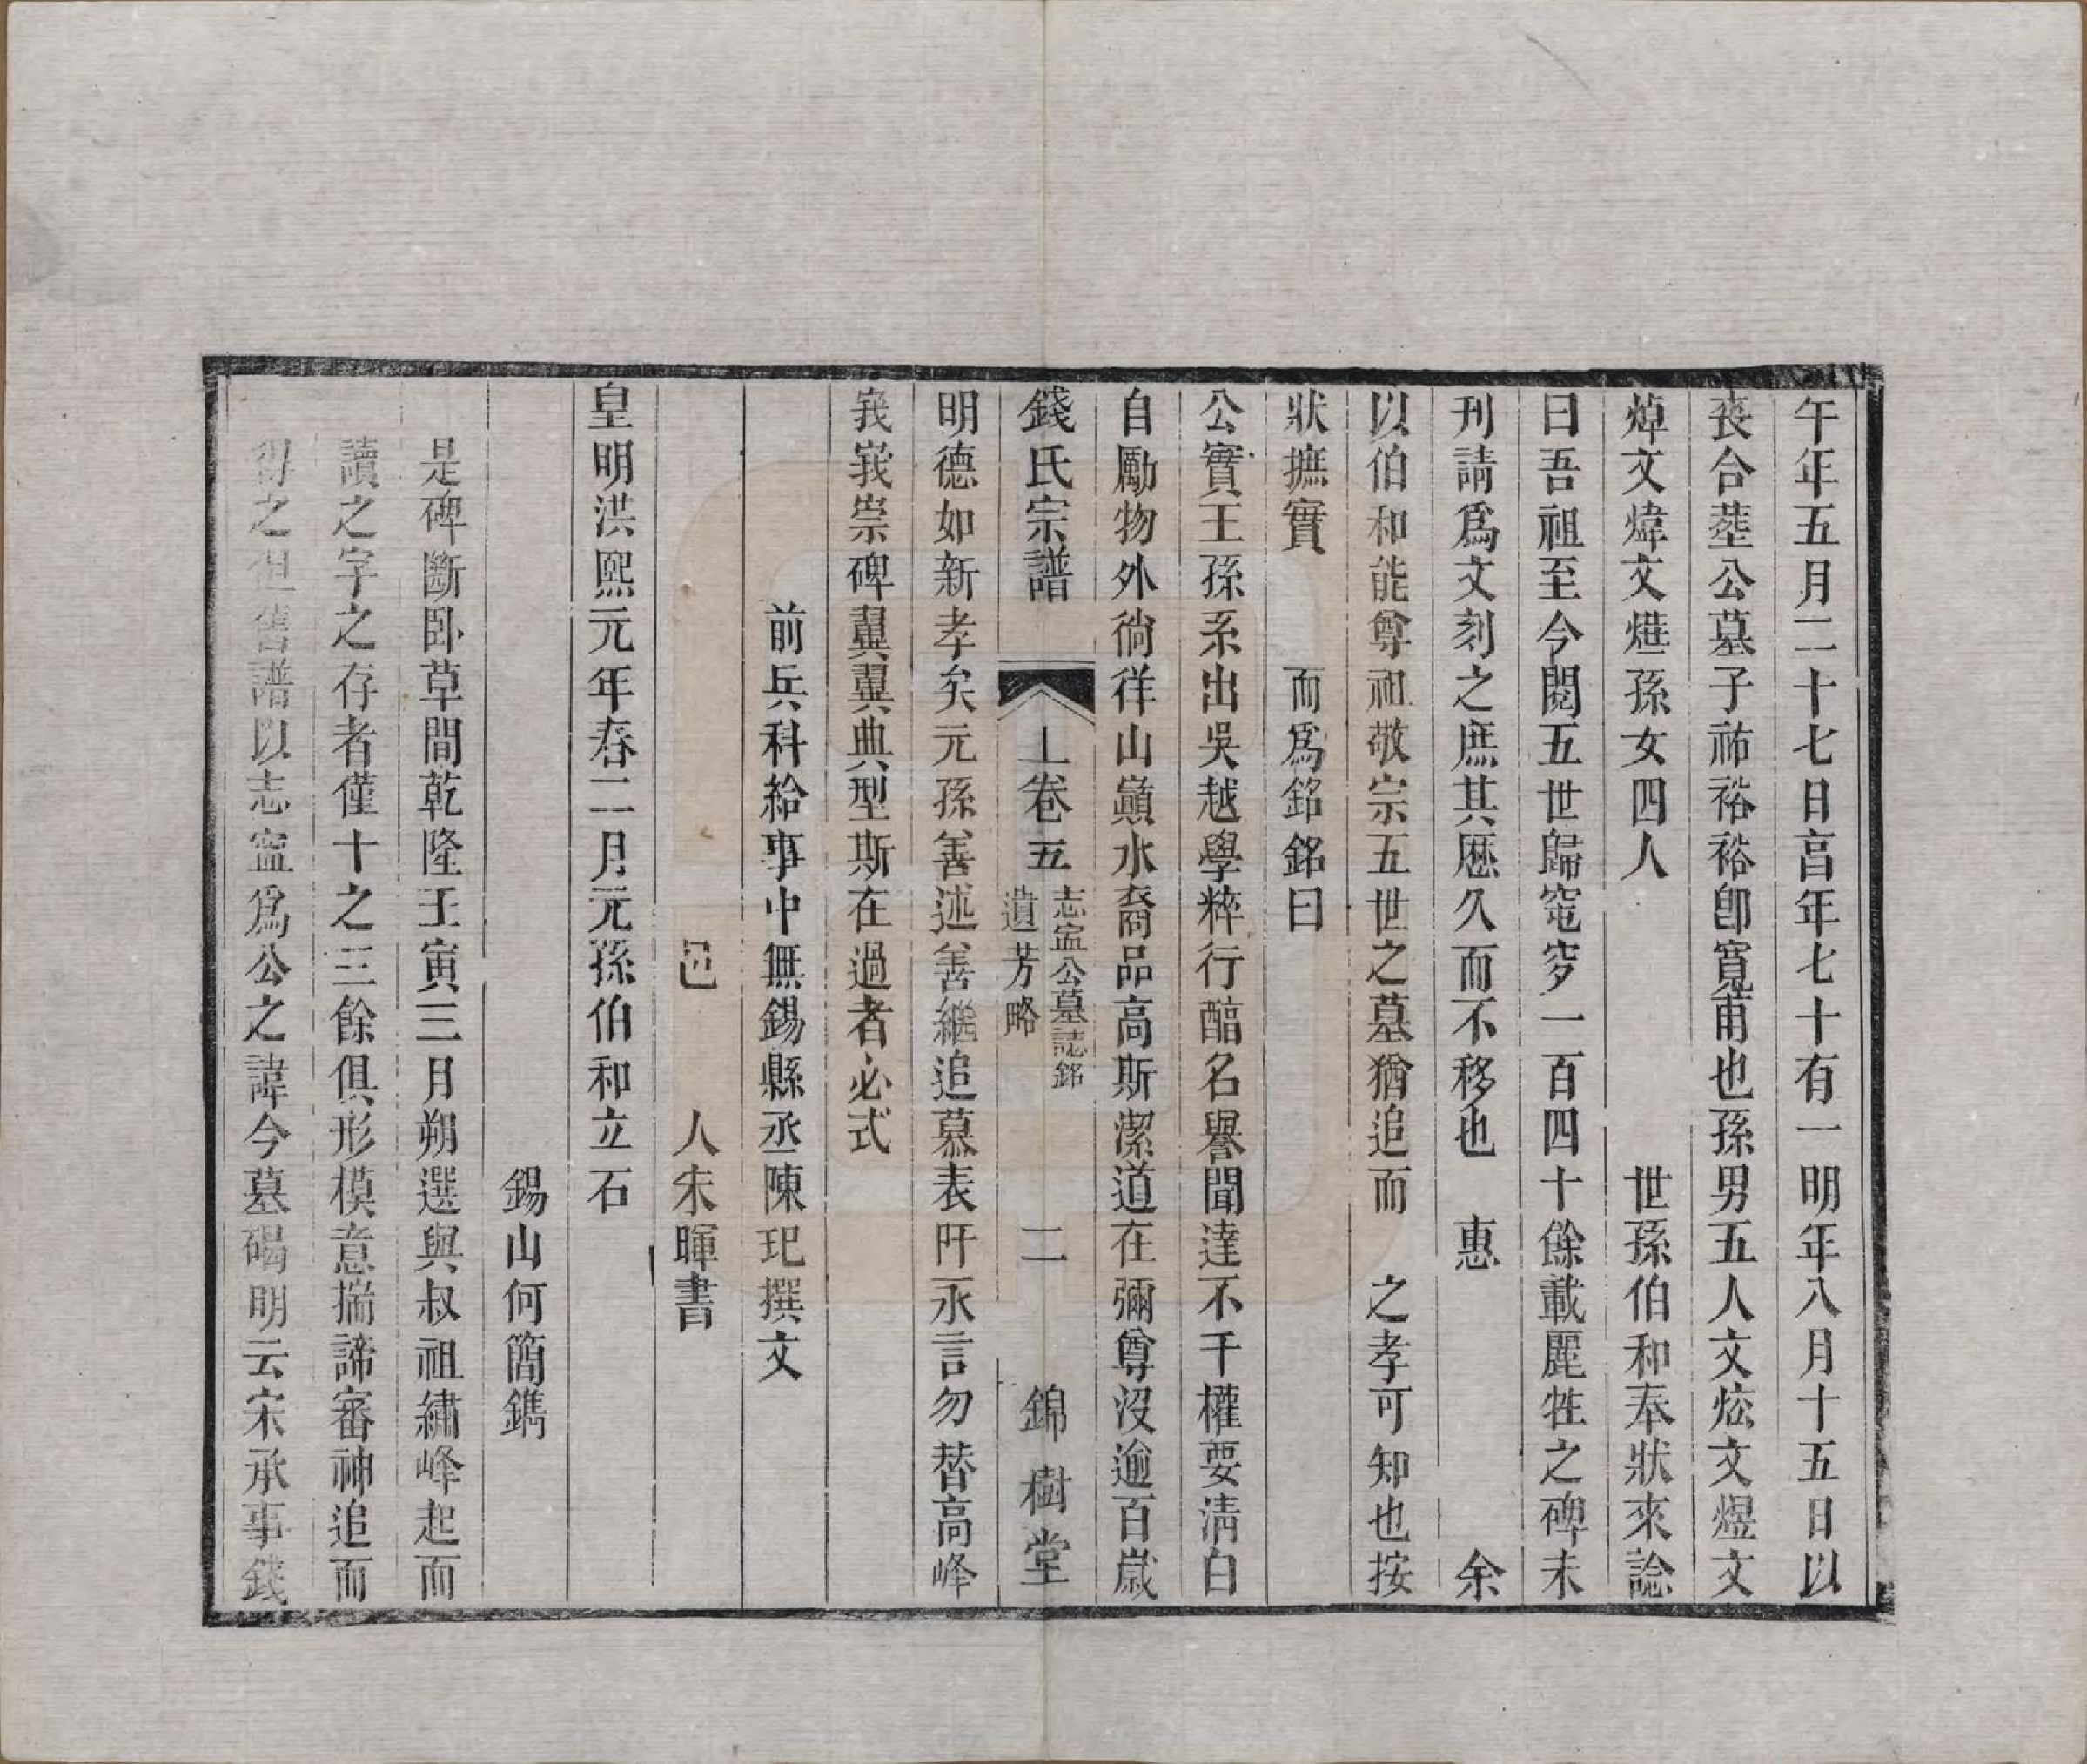 午年五月二十七日亯年七十有一明年八月十五日以
喪合塟公墓子祐裕裕卽寬甫也孫男五人文炫文煜文
焯文煒文㷂孫女四人　世孫伯和奉狀來諗
曰吾祖至今閱五世歸窀穸一百四十餘載麗牲之碑未
刊請爲文刻之庶其歷久而不移也　惠　余
以伯和能尊祖敬宗五世之墓猶追而　之孝可知也按
狀摭實　而爲銘銘曰
公實王孫系出吳越學粹行醕名譽聞達不干權要淸白
自勵物外徜徉山巔水裔品高斯潔道在彌尊沒逾百歲
錢氏宗譜　上卷五　志寍公墓誌銘　遺芳略　二　錦樹堂
明德如新孝矣元孫善述善繼追慕表阡永言勿替高峰
峩峩崇碑翼翼典型斯在過者必式
前兵科給事中無錫縣丞陳玘撰文
邑　人朱暉書
皇明洪熙元年春二月元孫伯和立石
錫山何簡鐫
是碑斷卧草間乾隆壬寅三月朔選與叔祖繡峰起而
讀之字之存者僅十之三餘俱形模意揣諦審神追而
得之但舊譜以志寍爲公之諱今墓碣明云宋承事錢